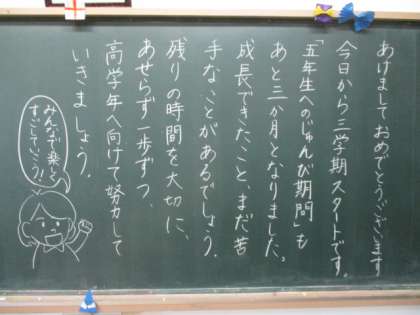 あけまして おめでとうございます
今日から三学期スタートです。
「五年生へのじゅんび期間」も
あと三か月となりました。
成長できたこと、まだ苦
手なことがあるでしょう。
残りの時間を大切に、
あせらず一歩ずつ、
高学年へ向けて努力して
いきましょう。
みんなで楽しく
すごしていこう!